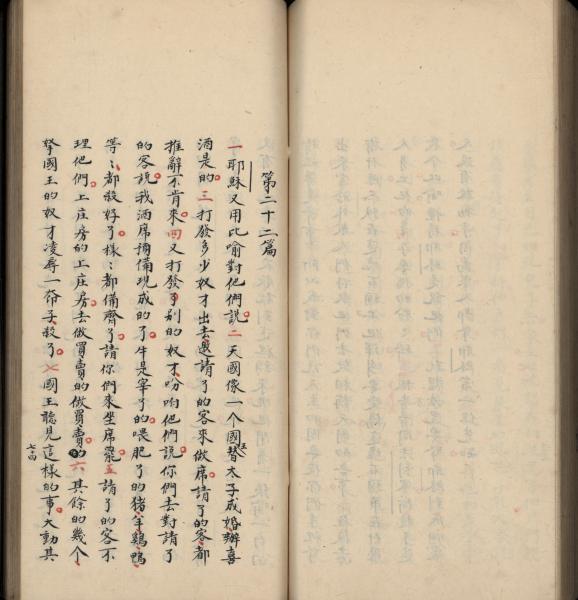 第二十二篇
一耶穌又用比喻對他們說。二天國像一个國王替太子成婚辦喜
酒是的。三打發多少奴才出去邀請了的客來做席。請了的客都
推辭不肯來。四又打發了別的奴才吩咐他們說你們去對請了
的客說我酒席預備現成的了。牛是宰了的。喂肥了的猪羊鷄鴨
等〻都殺好了。樣〻都備齊了。請你們來坐席罷。五請了的客不
理他們。上庄房的上庄房去。做買賣的做買賣的。六其餘的幾个
拏國王的奴才凌辱一子殺了。七國王聽見這樣的事。大動其